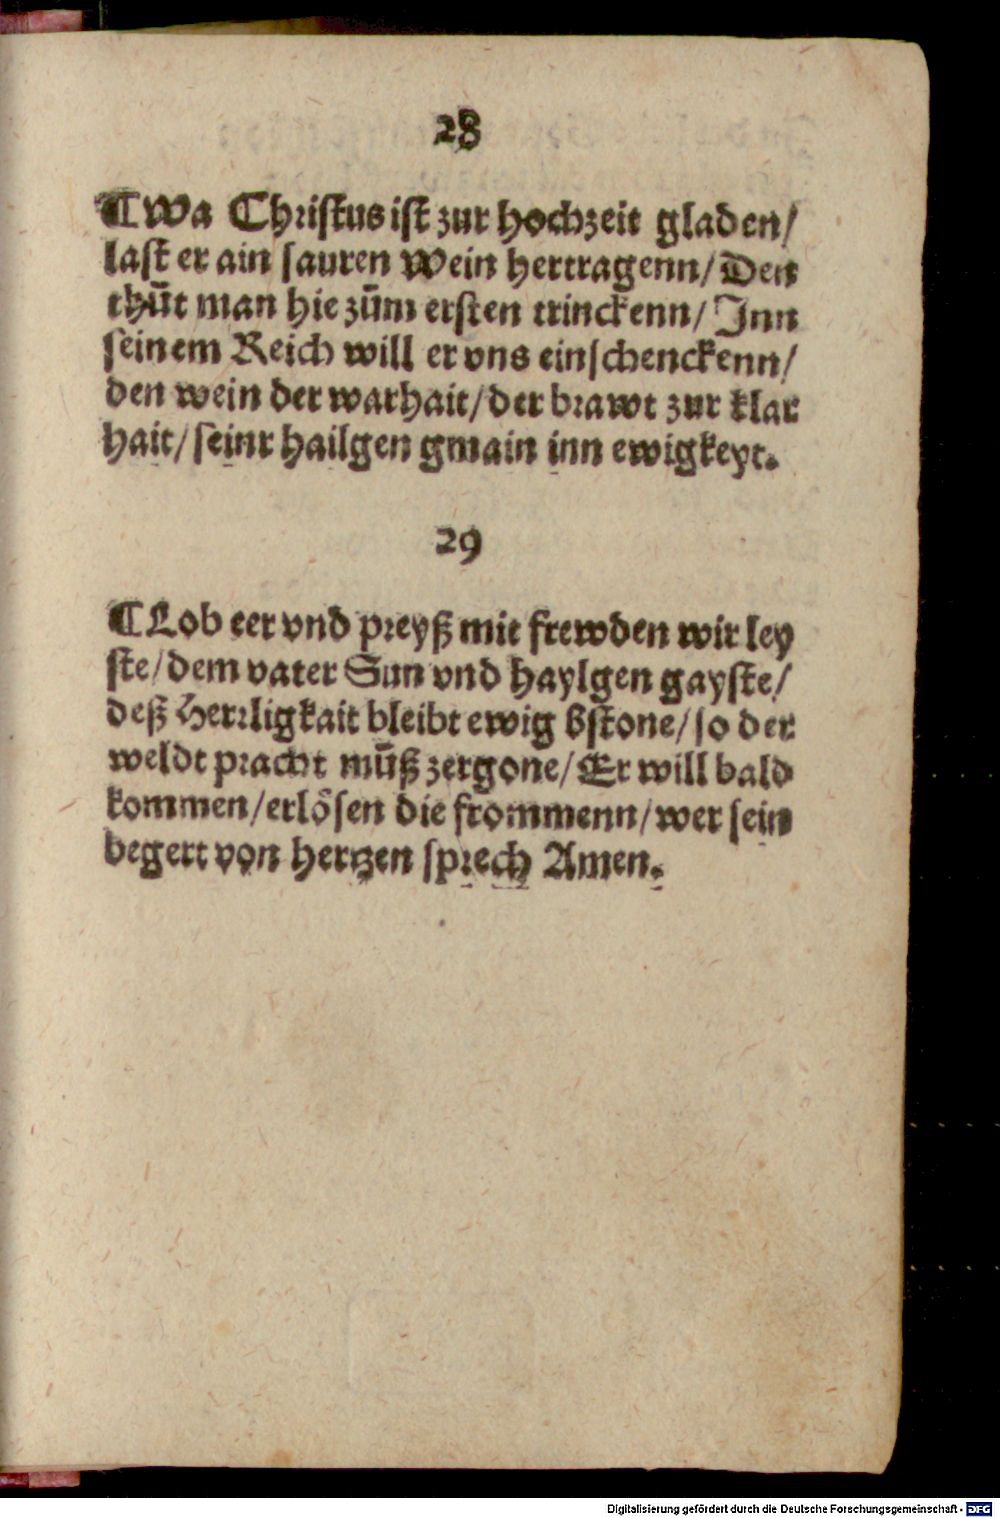 28
¶ Wa Christus ist zur hochzeit gladen/
last er ain sauren Wein hertragenn/ Den
thuͤt man hie zuͤm ersten trinckenn/ Inn
seinem Reich will er vns einschenckenn/
den wein der warhait/ der brawt zur klar
hait/ seinr hailgen gmain inn ewigkeyt.
29
¶ Lob eer vnd preyß mit frewden wir ley
ste/ dem vater Sun vnd haylgen gayste/
deß Herrligkait bleibt ewig bstone/ so der
weldt pracht muͤß zergone/ Er will bald
kommen/ erlösen die frommenn/ wer sein
begert von hertzen sprech Amen.
Digitalisierung gefördert durch die Deutsche Forschungsgemeinschaft - DFG